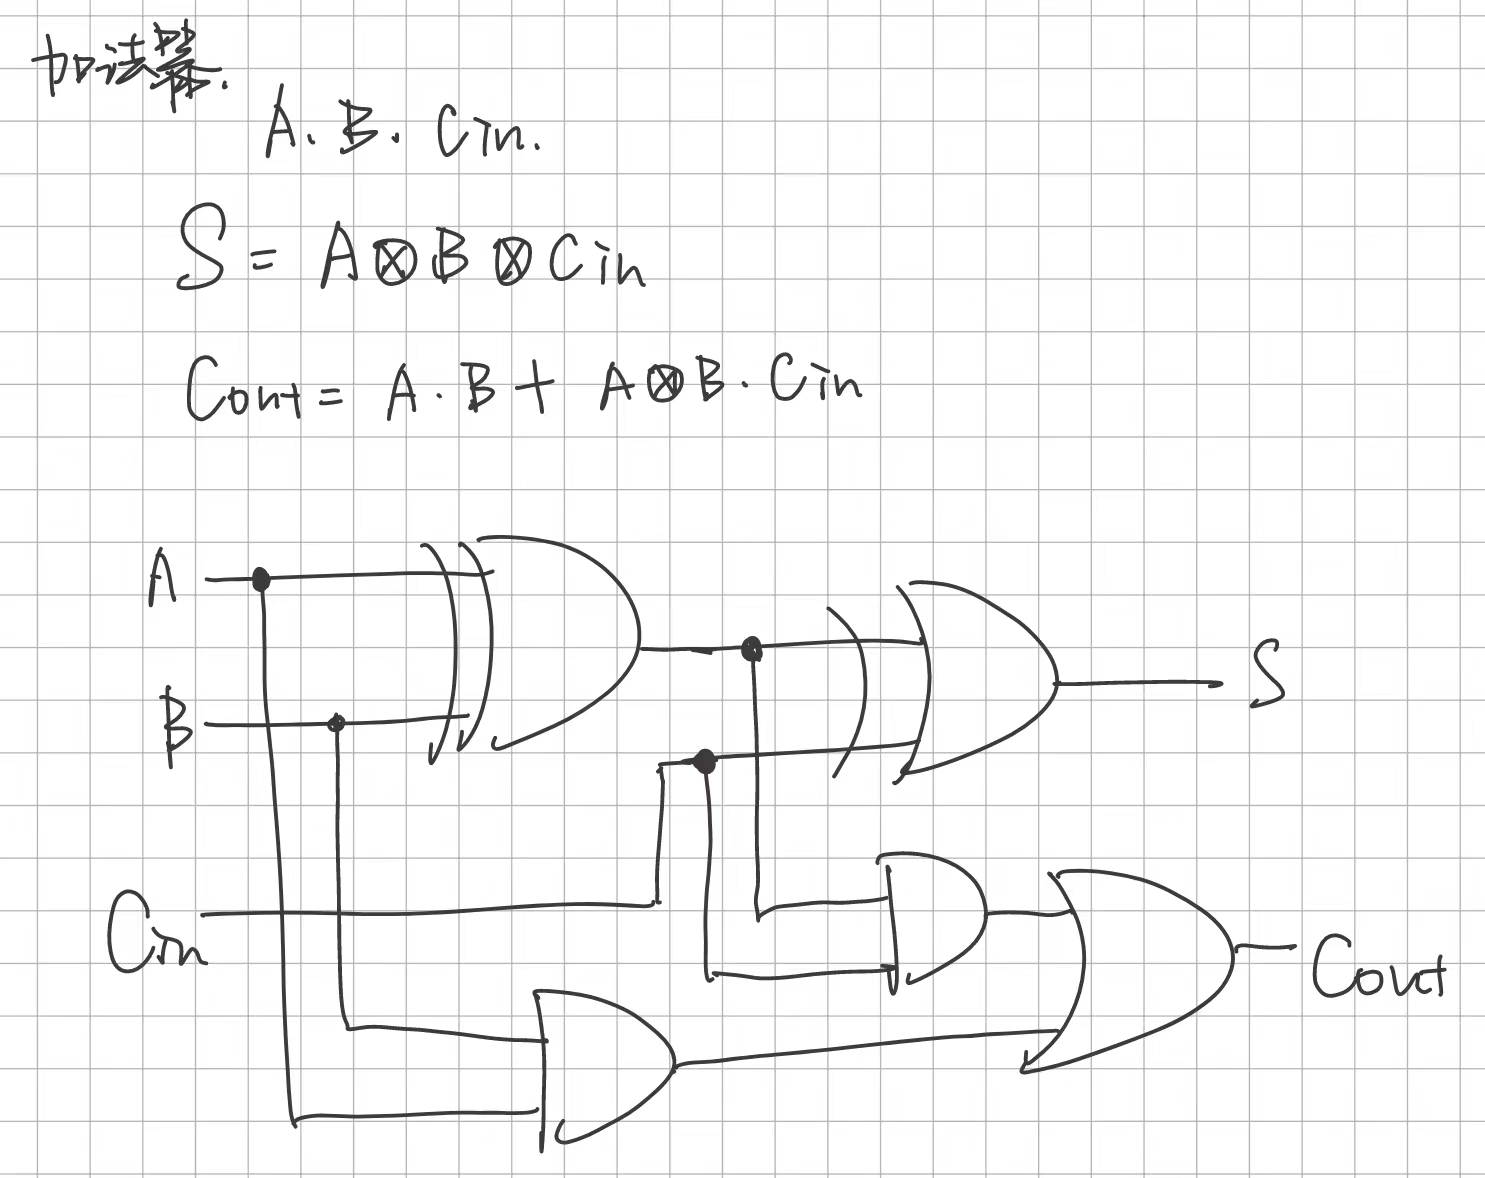 加法器.
A. B. Cin.
S = A⊗B⊗Cin
Cout = A·B + A⊗B·Cin
A
S
B
Cin
Cout